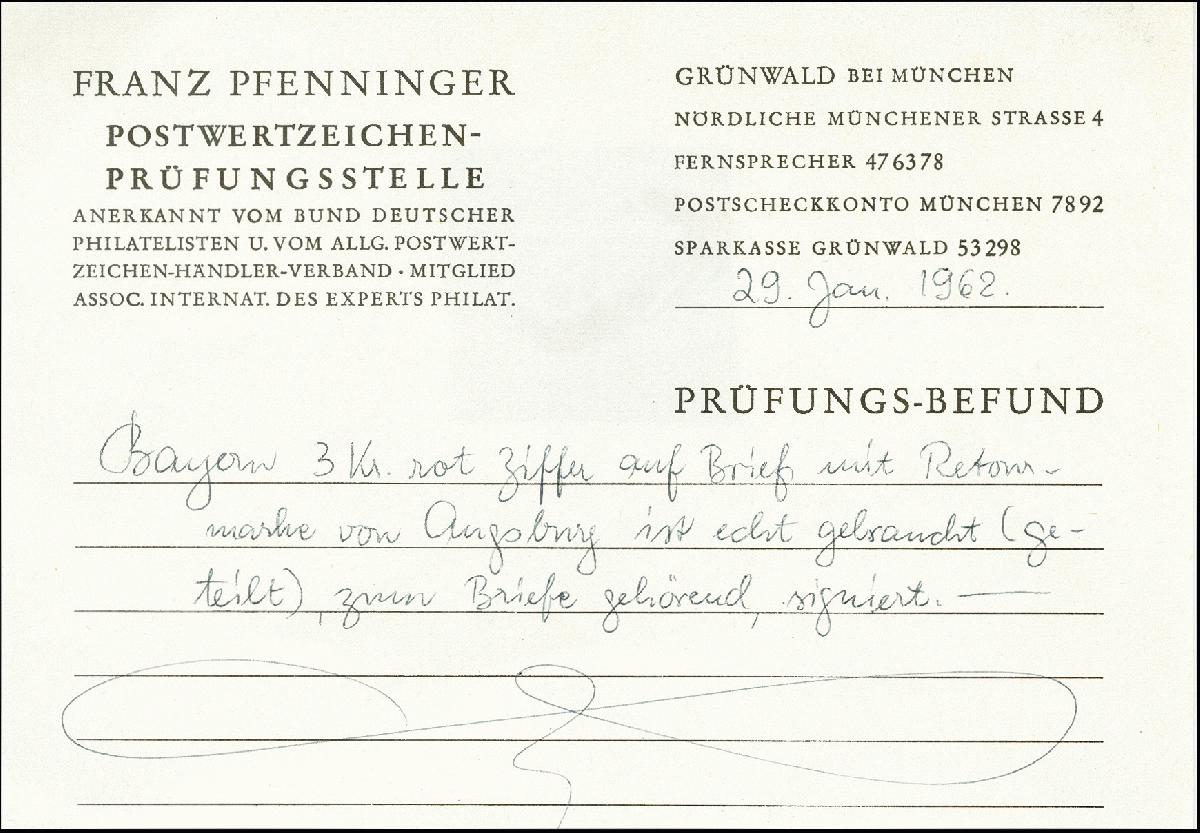 FRANZ PFENNINGER
POSTWERTZEICHEN-
PRÜFUNGSSTELLE
ANERKANNT VOM BUND DEUTSCHER
PHILATELISTEN U. VOM ALLG. POSTWERT-
ZEICHEN-HÄNDLER-VERBAND · MITGLIED
ASSOC. INTERNAT. DES EXPERTS PHILAT.
GRÜNWALD BEI MÜNCHEN
NÖRDLICHE MÜNCHENER STRASSE 4
FERNSPRECHER 476378
POSTSCHECKKONTO MÜNCHEN 7892
SPARKASSE GRÜNWALD 53298
29. Jan. 1962.
PRÜFUNGS-BEFUND
Bayern 3 Kr. rot Ziffer auf Brief mit Retour-
marke von Augsburg ist echt gebraucht (ge-
teilt), zum Briefe gehörend, signiert. —